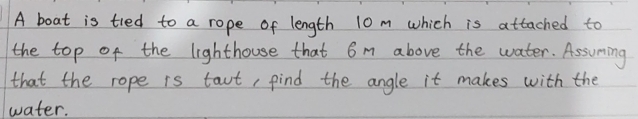 A boat is tied to a rope of length 10 m which is attached to
the top of the lighthouse that 6 m above the water. Assuming
that the rope is taut, find the angle it makes with the
water.